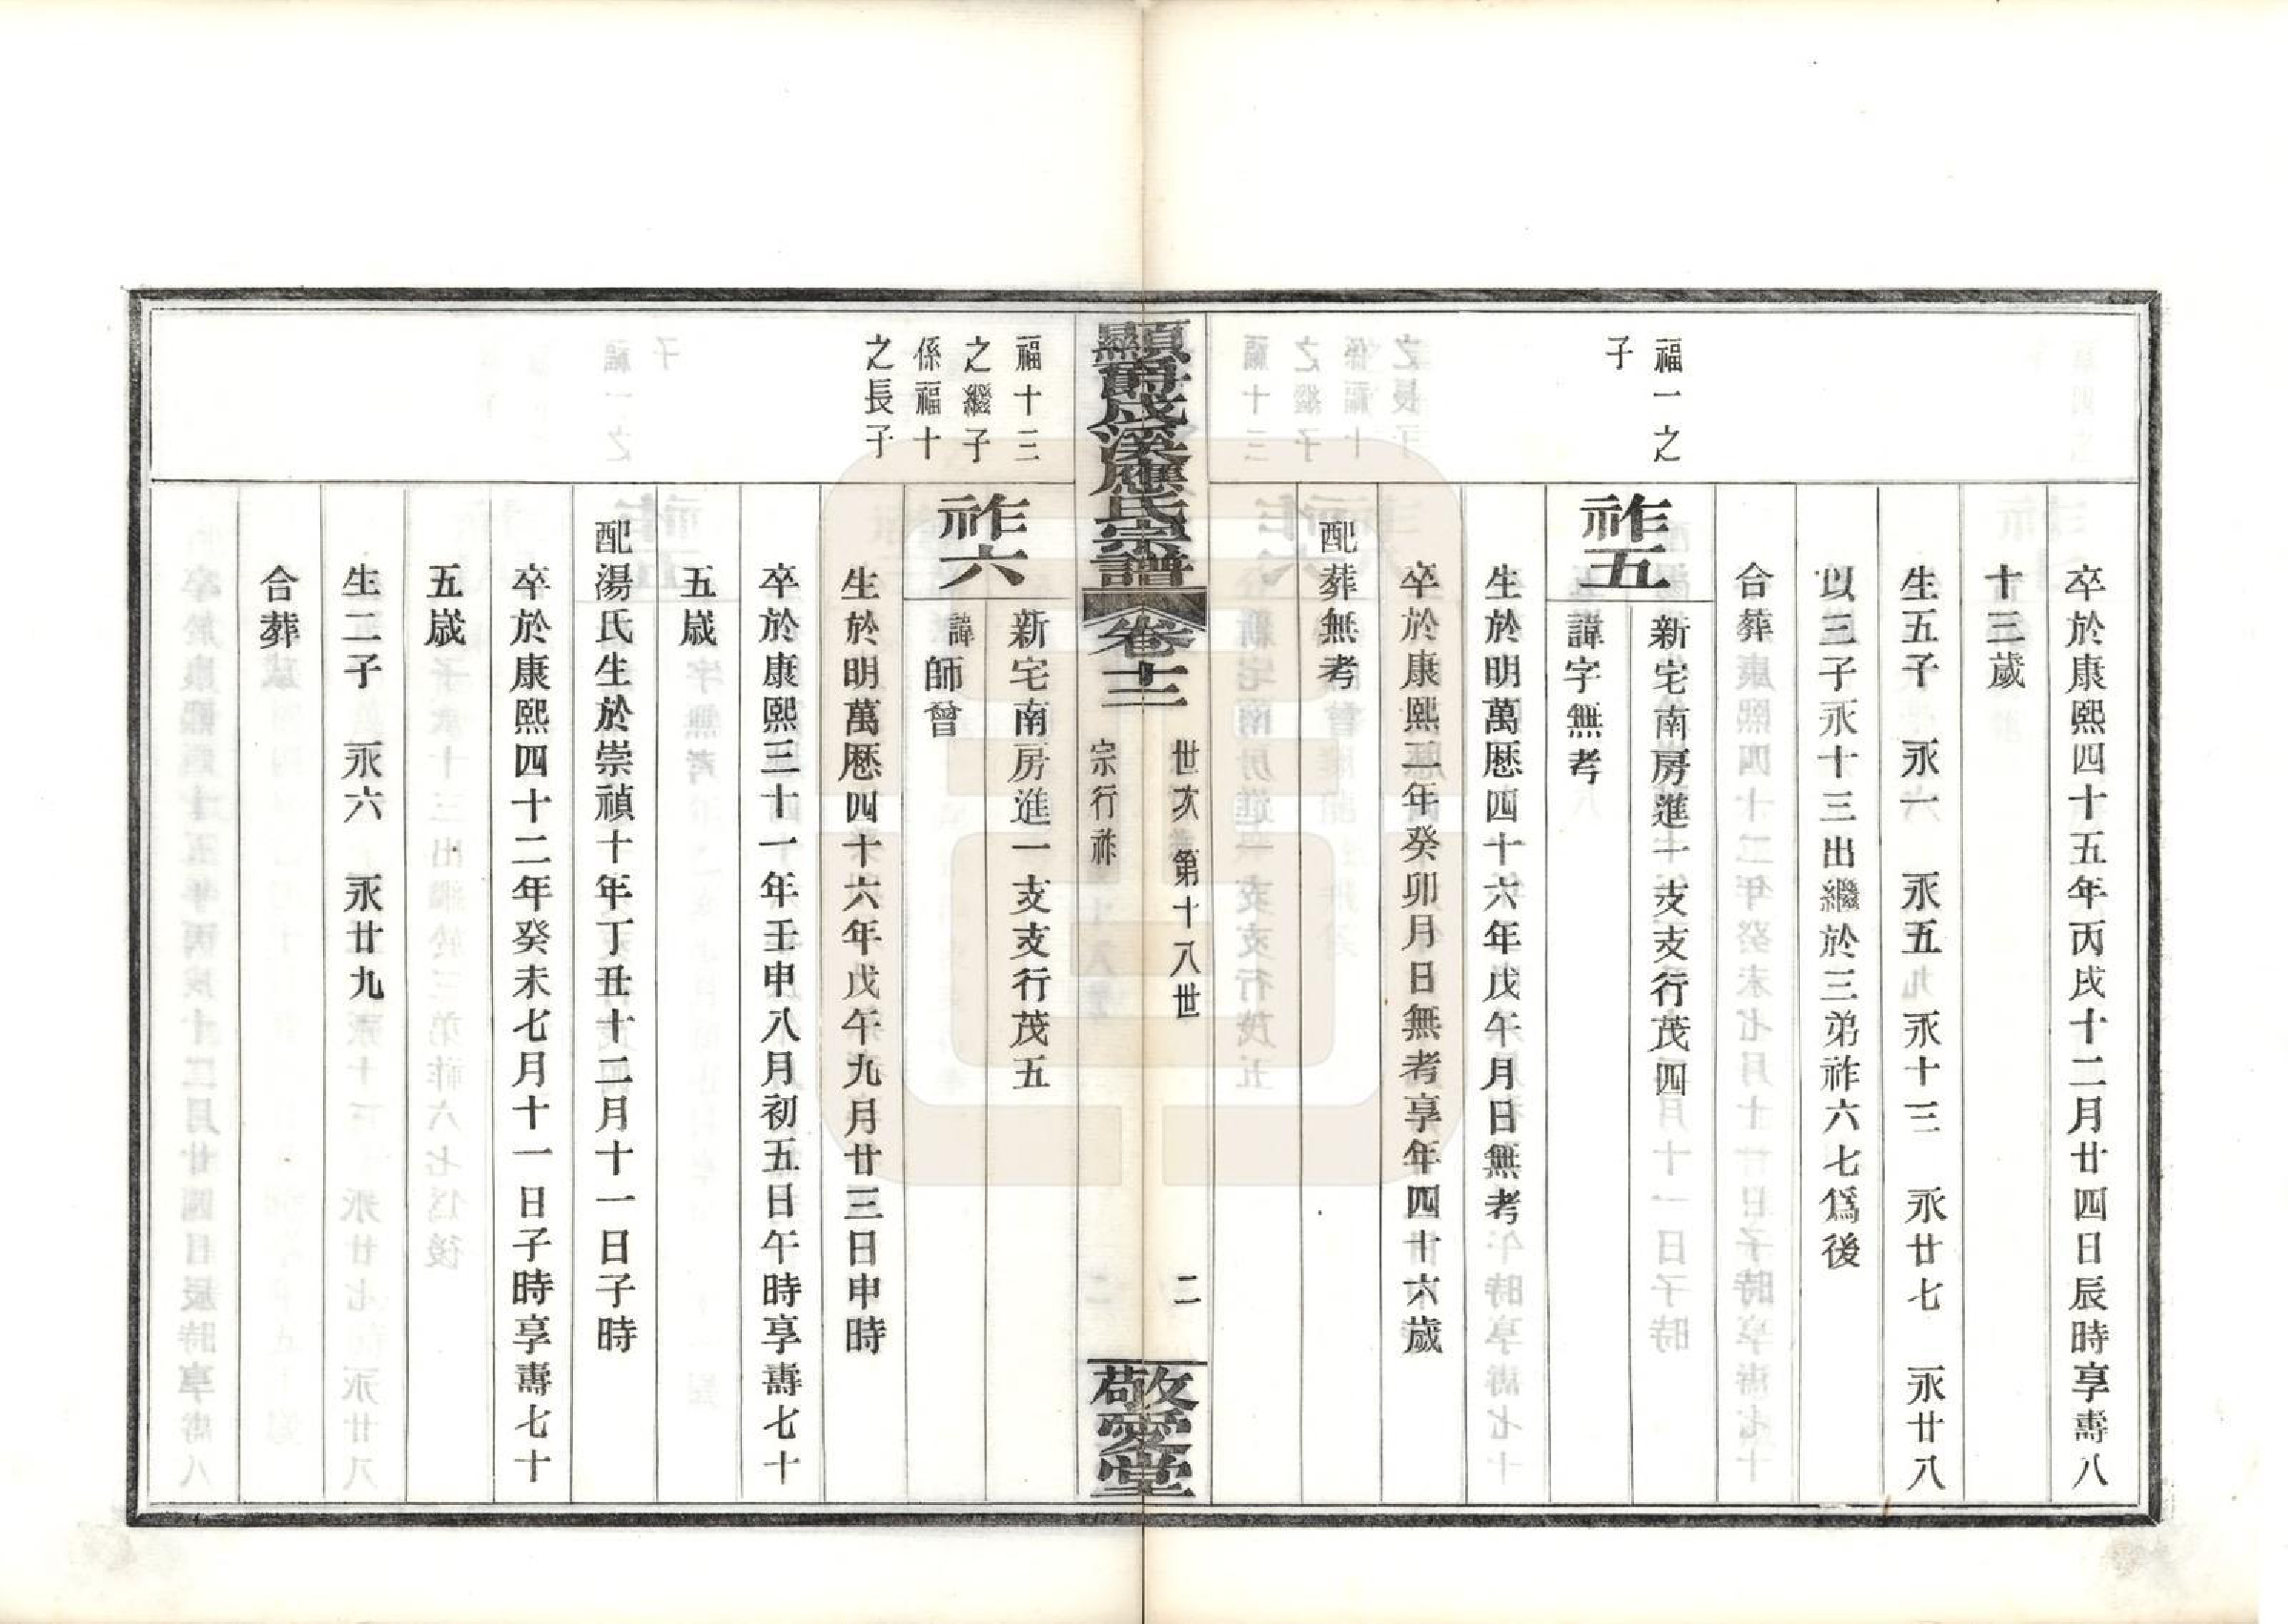 卒於康熙四十五年丙戌十二月廿四日辰時享壽八
十三歲
生五子　永一　永五　永十三　永廿七　永廿八
以三子永十三出繼於三弟祚六七爲後
合葬
福一之
子
祚五
新宅南房進一支支行茂四
諱字無考
生於明萬厯四十六年戊午月日無考
卒於康熙二年癸卯月日無考享年四十六歲
配葬無考
顯爵成溪應氏宗譜
卷十二
世次　第十八世
宗行祚
二
敬愛堂
福十三
之繼子
係福十
之長子
祚六
新宅南房進一支支行茂五
諱師曾
生於明萬厯四十六年戊午九月廿三日申時
卒於康熙三十一年壬申八月初五日午時享壽七十
五歲
配湯氏生於崇禎十年丁丑十二月十一日子時
卒於康熙四十二年癸未七月十一日子時享壽七十
五歲
生二子　永六　永廿九
合葬